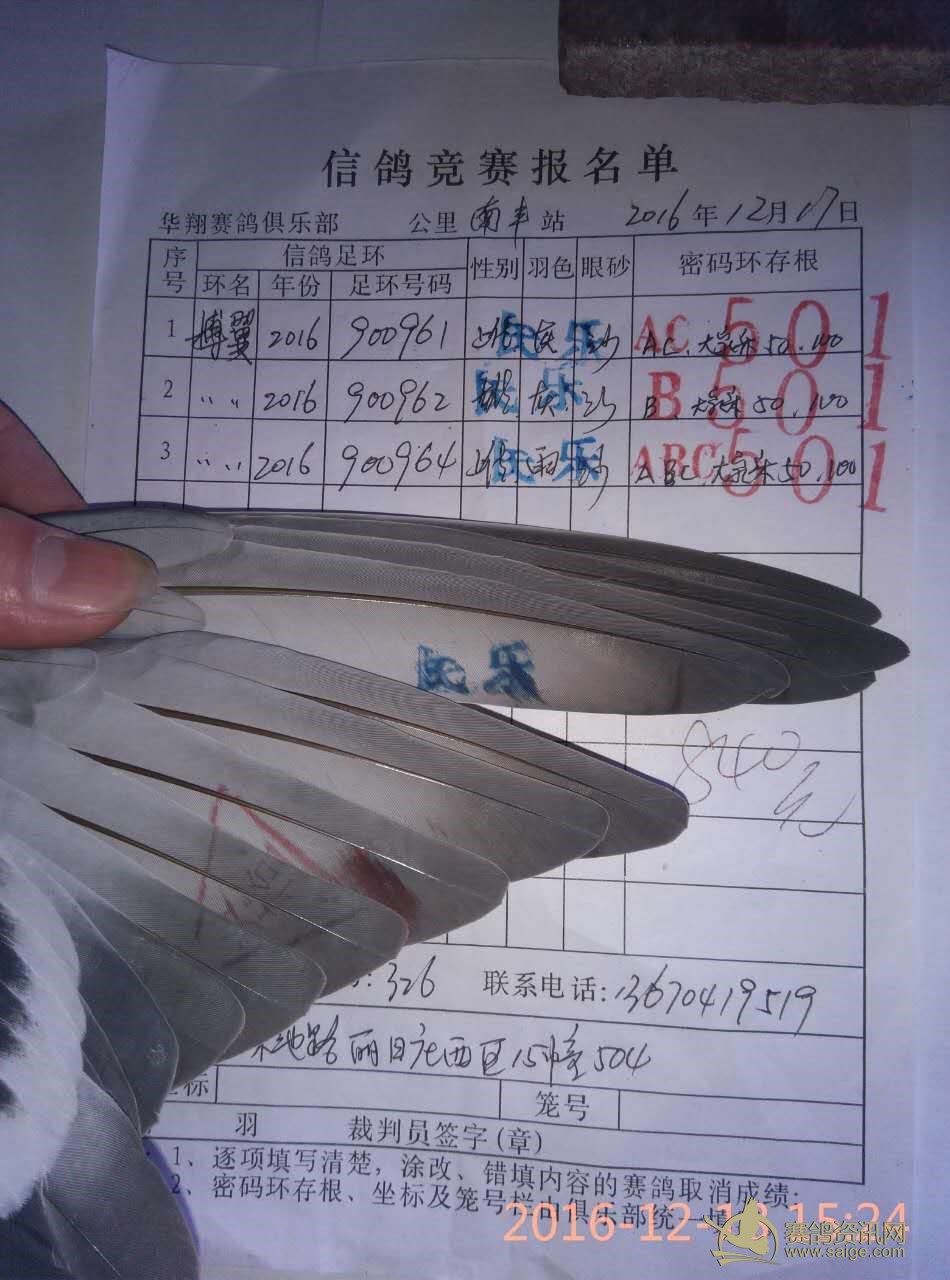 信鸽竞赛报名单
华翔赛鸽俱乐部 公里 南丰 站 2016年12月17日
序号 信鸽足环 性别 羽色 眼砂 密码环存根
环名 年份 足环号码
1 博翼 2016 900961 灰 砂 AC 50.100 AC 501
2 〃 〃 2016 900962 雄 灰 砂 B 50.100 B 501
3 〃 〃 2016 900964 雨 砂 ABC 50.100 ABC 501
民乐
840元
:326 联系电话:13670419519
路丽日 西区15幢504
标 笼号
羽 裁判员签字(章)
1、逐项填写清楚，涂改、错填内容的赛鸽取消成绩;
2、密码环存根、坐标及笼号栏由俱乐部统一填
2016-12-18 15:24
赛鸽资讯网
www.saige.com